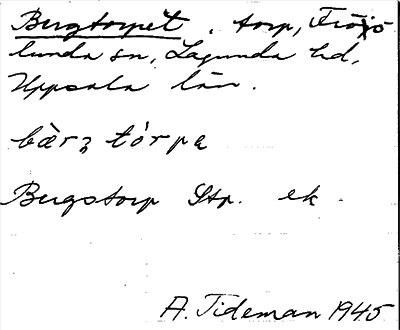 Bergtorpet, torp, Fröjs
lunda sn, Lagunda hd,
Uppsala län.
bærʒ tòrpɐ
Bergstorp Stp. ek.
A. Tideman 1945